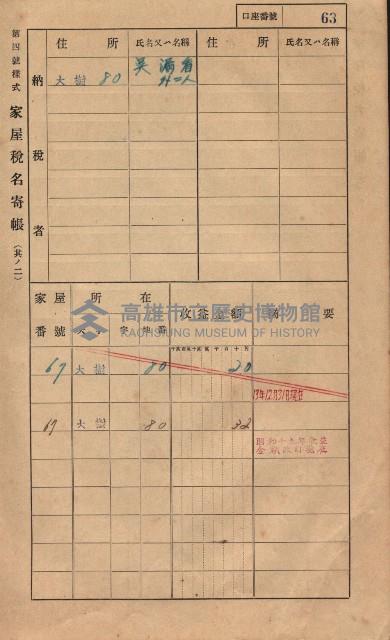 口座番號 63
第四號樣式 家屋稅名寄帳 (其ノ二)
納稅者
住所 氏名又ハ名稱 住所 氏名又ハ名稱
大樹 80 吳滿眉 外二人
家屋番號 所在 收益金額 摘要
大字 地番
千百十萬千百十円
67 大樹 80 20
13年12月31日現在
67 大樹 80 32
昭和十九年收益
金額改訂
高雄市立歷史博物館
KAOHSIUNG MUSEUM OF HISTORY